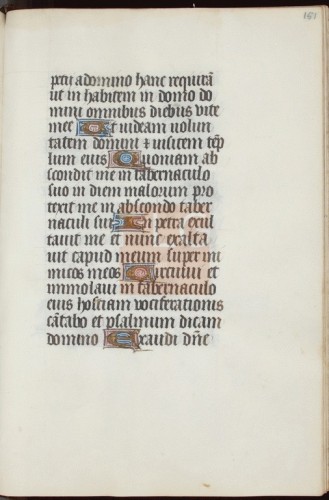 petii a domino hanc requirã
ut in habitem in domo do
mini omnibus diebus vite
mee Et videam volun
tatem domini & visitem tẽp
lum eius Quoniam ab
scondit me in tabernaculo
suo in diem malorum pro
texit me in abscondo taber
naculi sui In petra exul
tavit me et nunc exalta
vit capud meum super ini
micos meos Circuivi et
immolavi in tabernaculo
eius hostiam vociferationis
cãtabo et psalmum dicam
domino Exaudi dñe